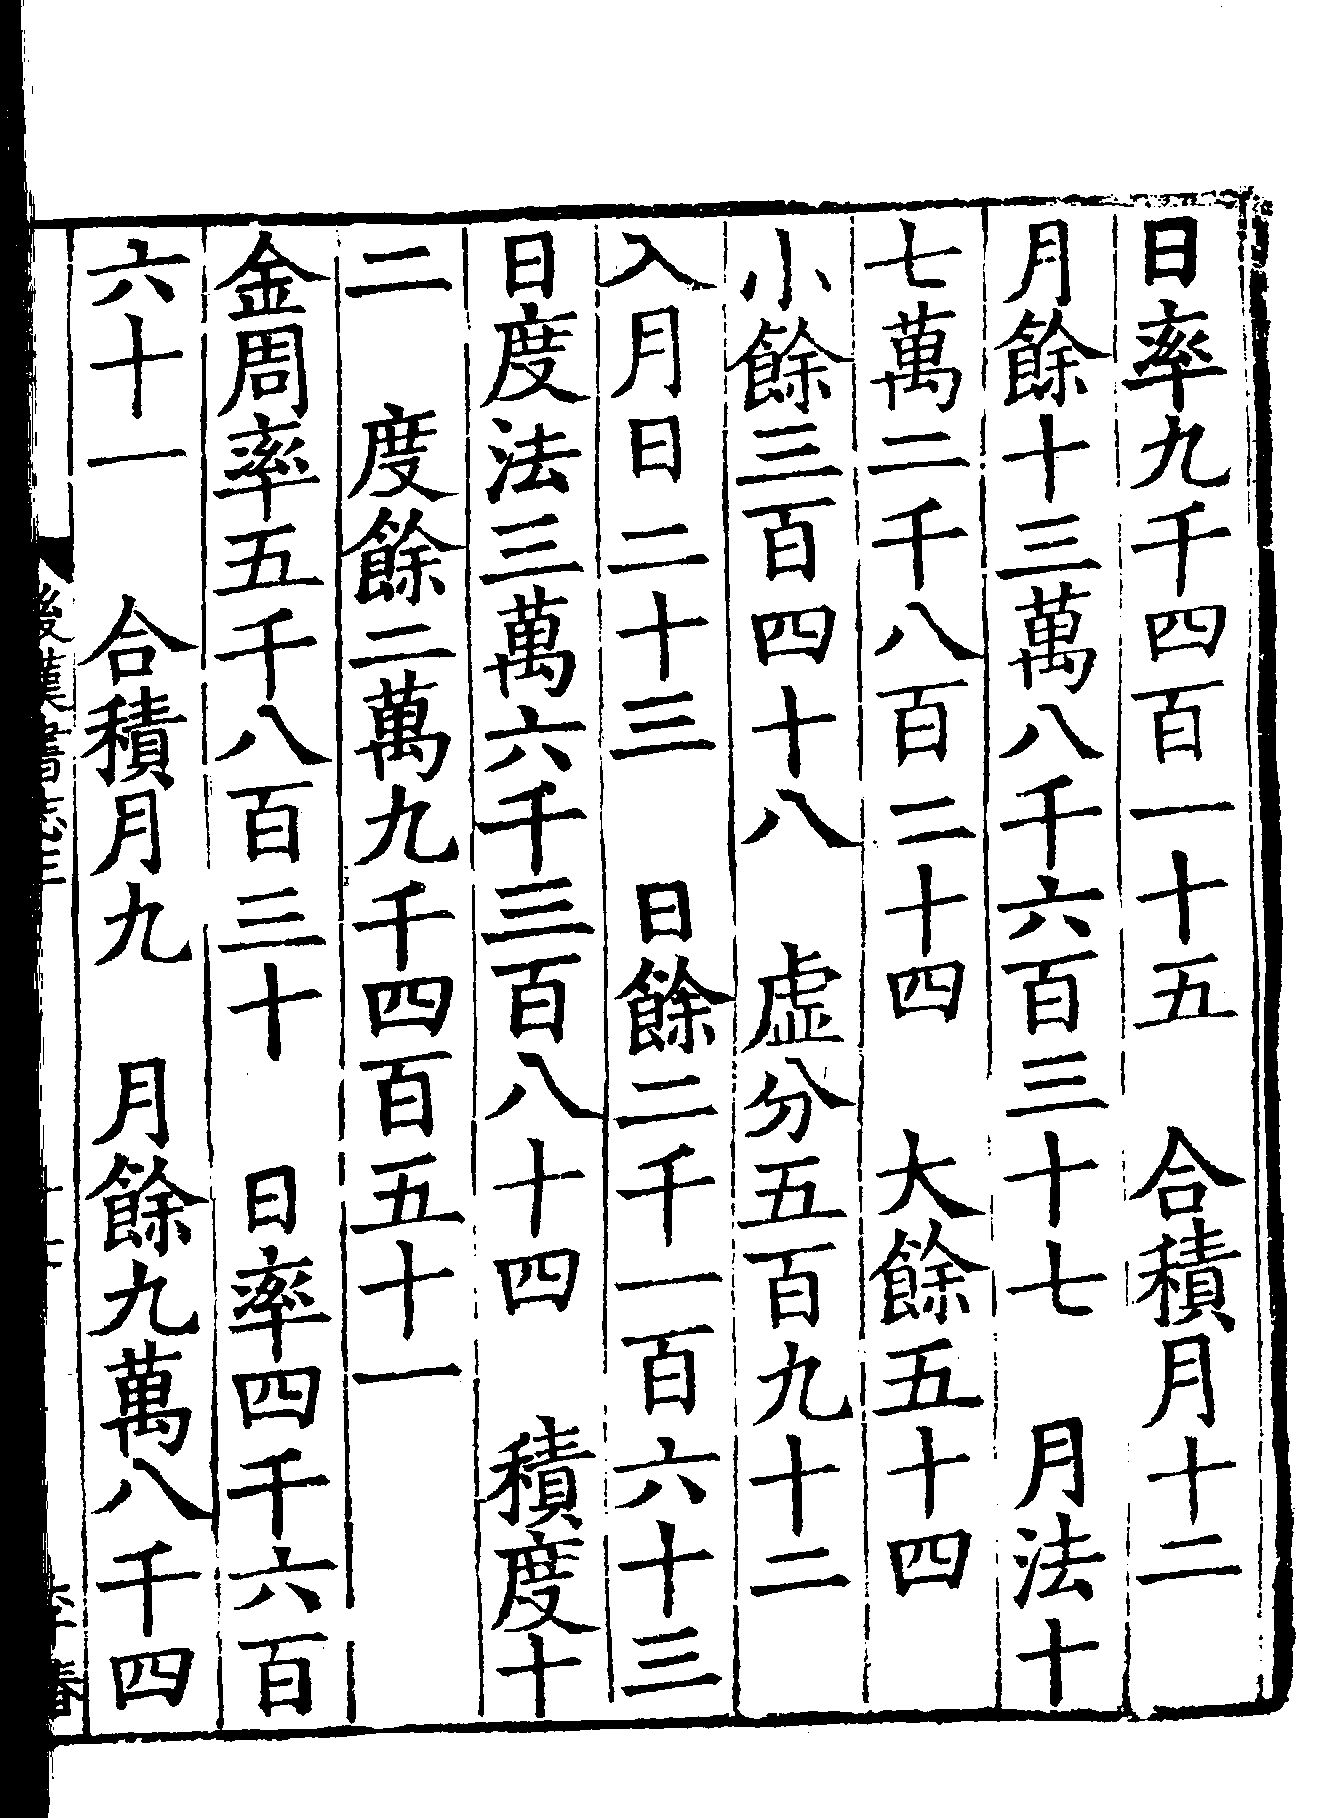 日率九千四百一十五　合積月十二
月餘十三萬八千六百三十七　月法十
七萬二千八百二十四　大餘五十四
小餘三百四十八　虛分五百九十二
入月日二十三　日餘二千一百六十三
日度法三萬六千三百八十四　積度十
二　度餘二萬九千四百五十一
金周率五千八百三十　日率四千六百
六十一　合積月九　月餘九萬八千四
後漢書志三